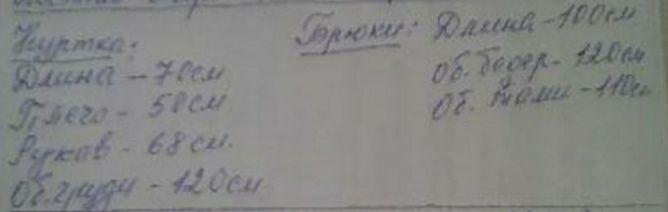 Куртка:
Длина - 70см
Плечо - 50см.
Рукав - 68см.
Об. груди - 120см
Брюки: Длина - 100см
Об. бедер - 120см
Об. талии - 110см